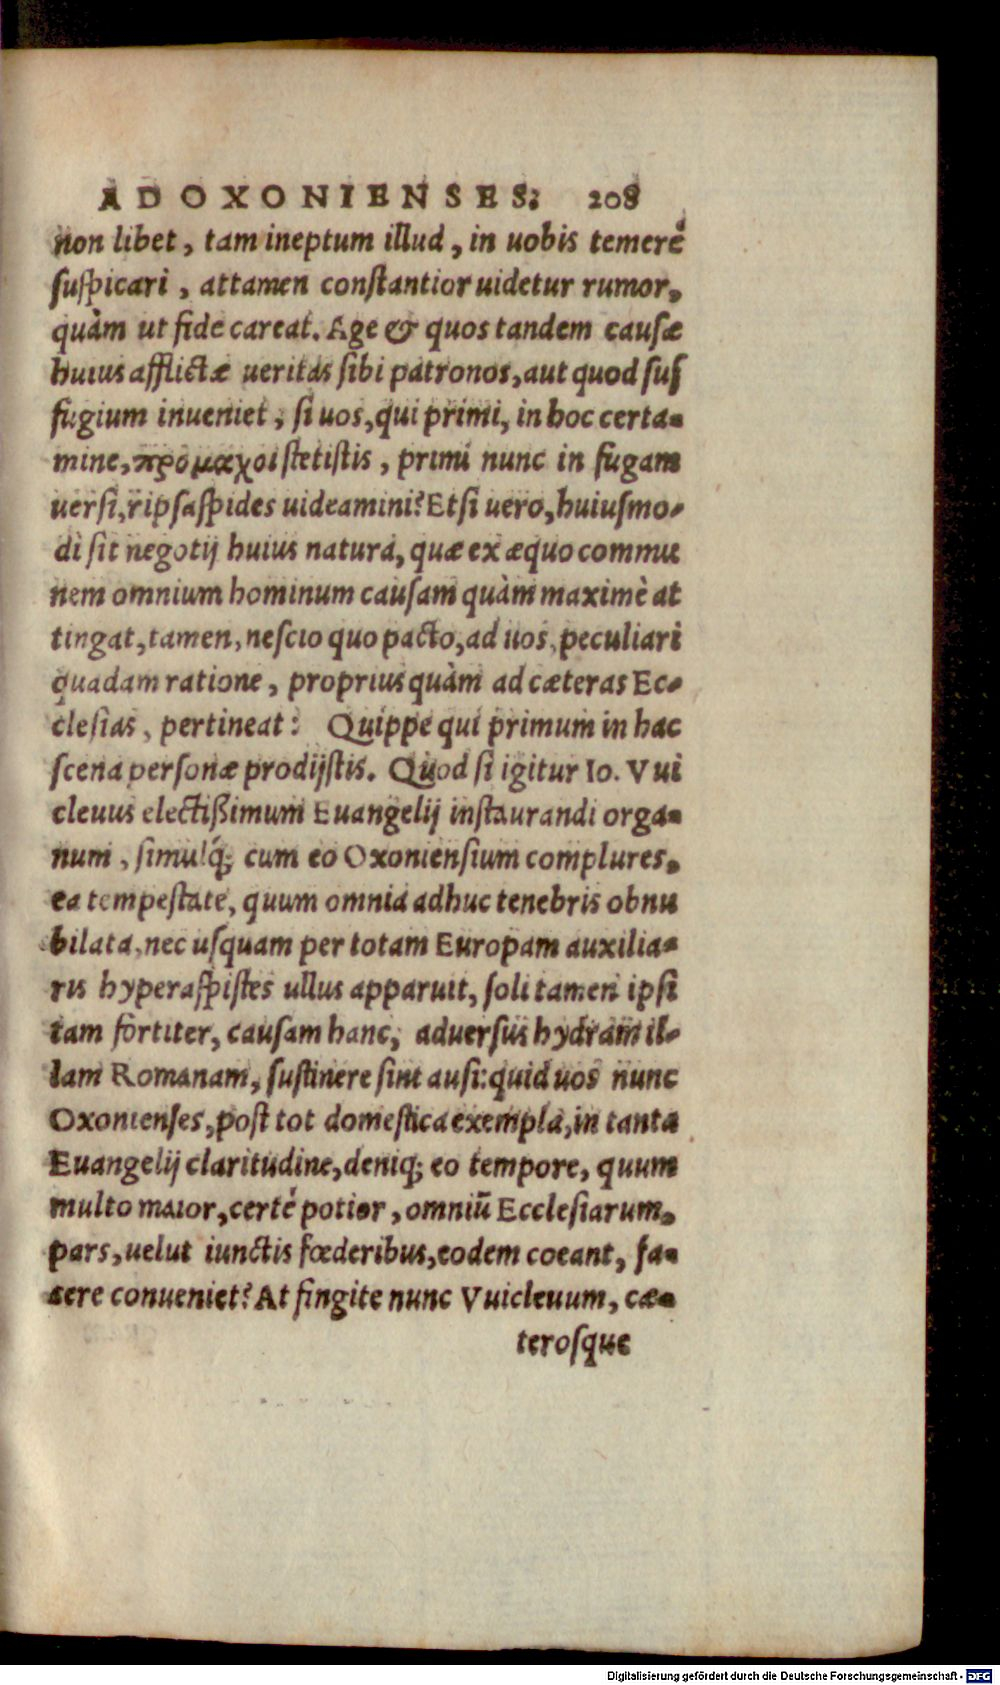 AD OXONIENSES. 208
non libet, tam ineptum illud, in uobis temerè
suſpicari, attamen conſtantior uidetur rumor,
quàm ut fide careat. Age & quos tandem cauſæ
huius afflictæ ueritas ſibi patronos, aut quod ſuf
fugium inueniet, ſi uos, qui primi, in hoc certa-
mine, πρόμαχοι ſtetiſtis, primi nunc in fugam
uerſi, ripſaſpides uideamini? Etſi uero, huiuſmo-
di ſit negotij huius natura, quæ ex æquo commu
nem omnium hominum cauſam quàm maximè at
tingat, tamen, neſcio quo pacto, ad uos, peculiari
quadam ratione, proprius quàm ad cæteras Ec-
cleſias, pertineat: Quippe qui primum in hac
ſcena perſonæ prodijſtis. Quod ſi igitur Io. Vui
cleuus electißimum Euangelij inſtaurandi orga-
num, ſimulq́; cum eo Oxonienſium complures,
ea tempeſtate, quum omnia adhuc tenebris obnu
bilata, nec uſquam per totam Europam auxilia-
ris hyperaſpiſtes ullus apparuit, ſoli tamen ipſi
tam fortiter, cauſam hanc, aduerſus hydram il-
lam Romanam, ſuſtinere ſint auſi: quid uos nunc
Oxonienſes, poſt tot domeſtica exempla, in tanta
Euangelij claritudine, deniq; eo tempore, quum
multo maior, certè potior, omniũ Eccleſiarum,
pars, uelut iunctis fœderibus, eodem coeant, fa-
cere conueniet? At fingite nunc Vuicleuum, cæ-
teroſque
Digitalisierung gefördert durch die Deutsche Forschungsgemeinschaft - DFG